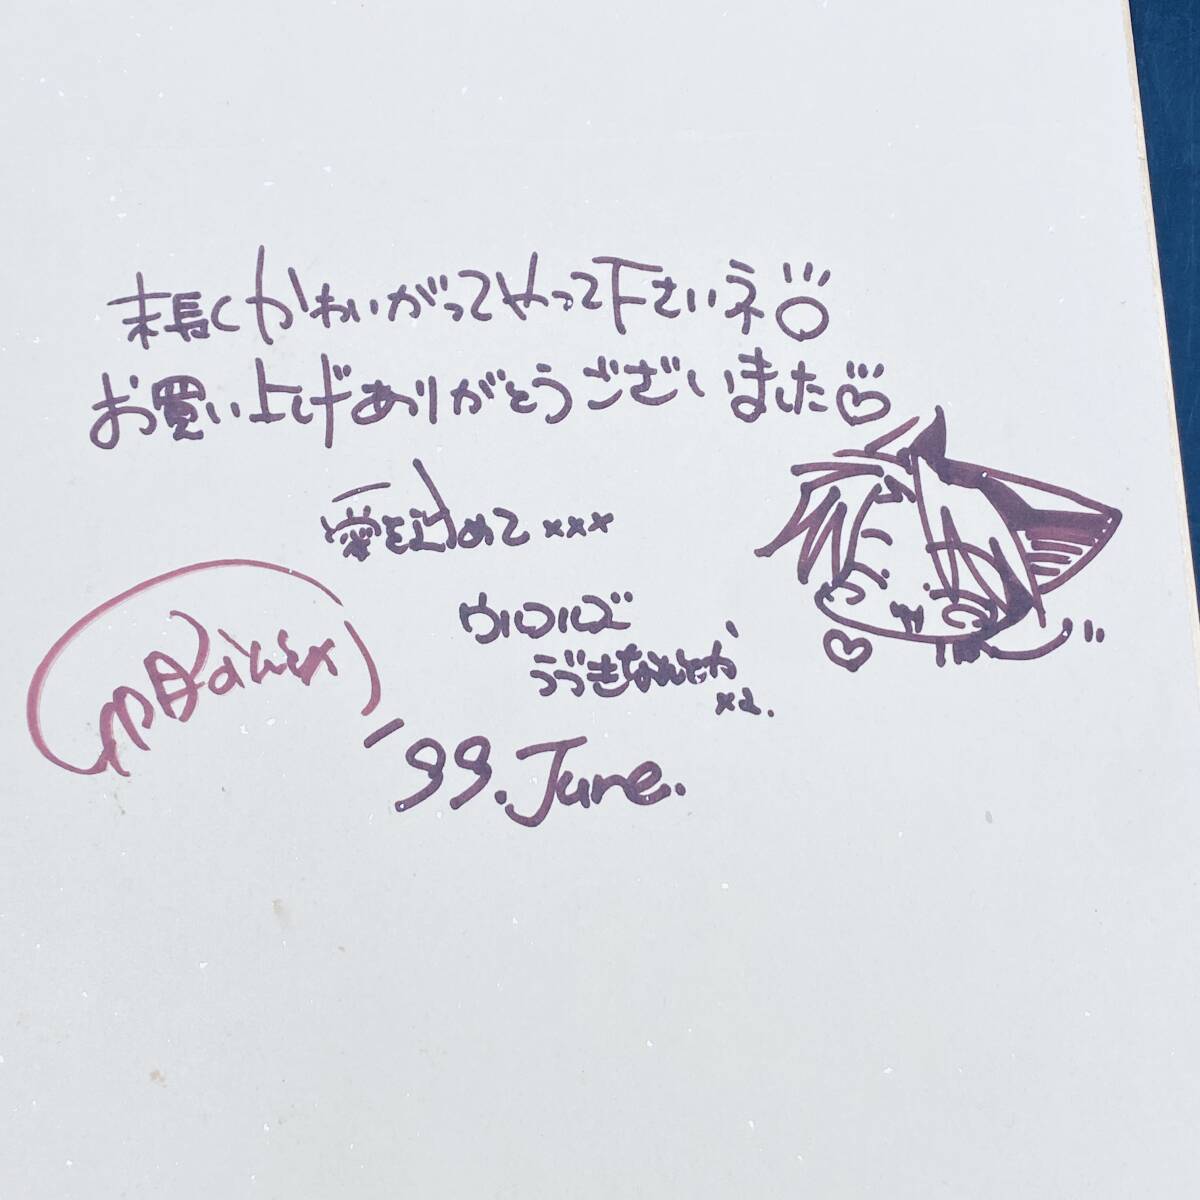 末長くかわいがってやって下さいネ
お買い上げありがとうございました♡
愛を込めて×××
ウルフルズ
うづきなおとか
'99. June.